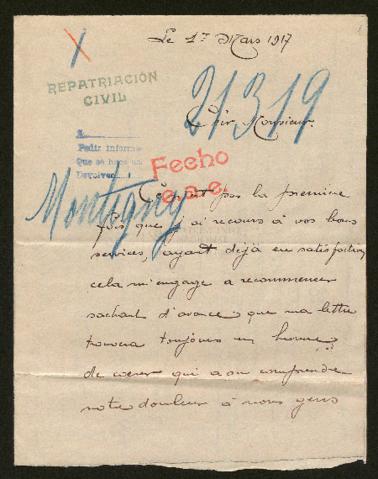 Le 1er Mars 1917
REPATRIACIÓN
CIVIL
21319
Cher Monsieur.
A
Pedir informe
Que se haga
Devolver
Fecho
e.s.e.
Montigny
C'est pas la première
fois que j'ai recours à vos bons
services, ayant déjà eu satisfaction
cela m'engage a recommencer
sachant d'avance que ma lettre
trouvera toujours un homme
de coeur qui a su comprendre
notre douleur à nous gens